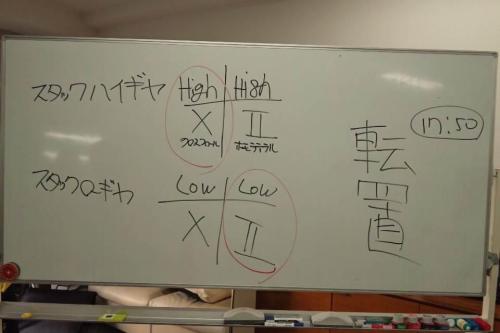 スタックハイギヤ High High
X II
クロスフォール ホモラテラル
スタックローギヤ Low Low
X II
転置
17:50